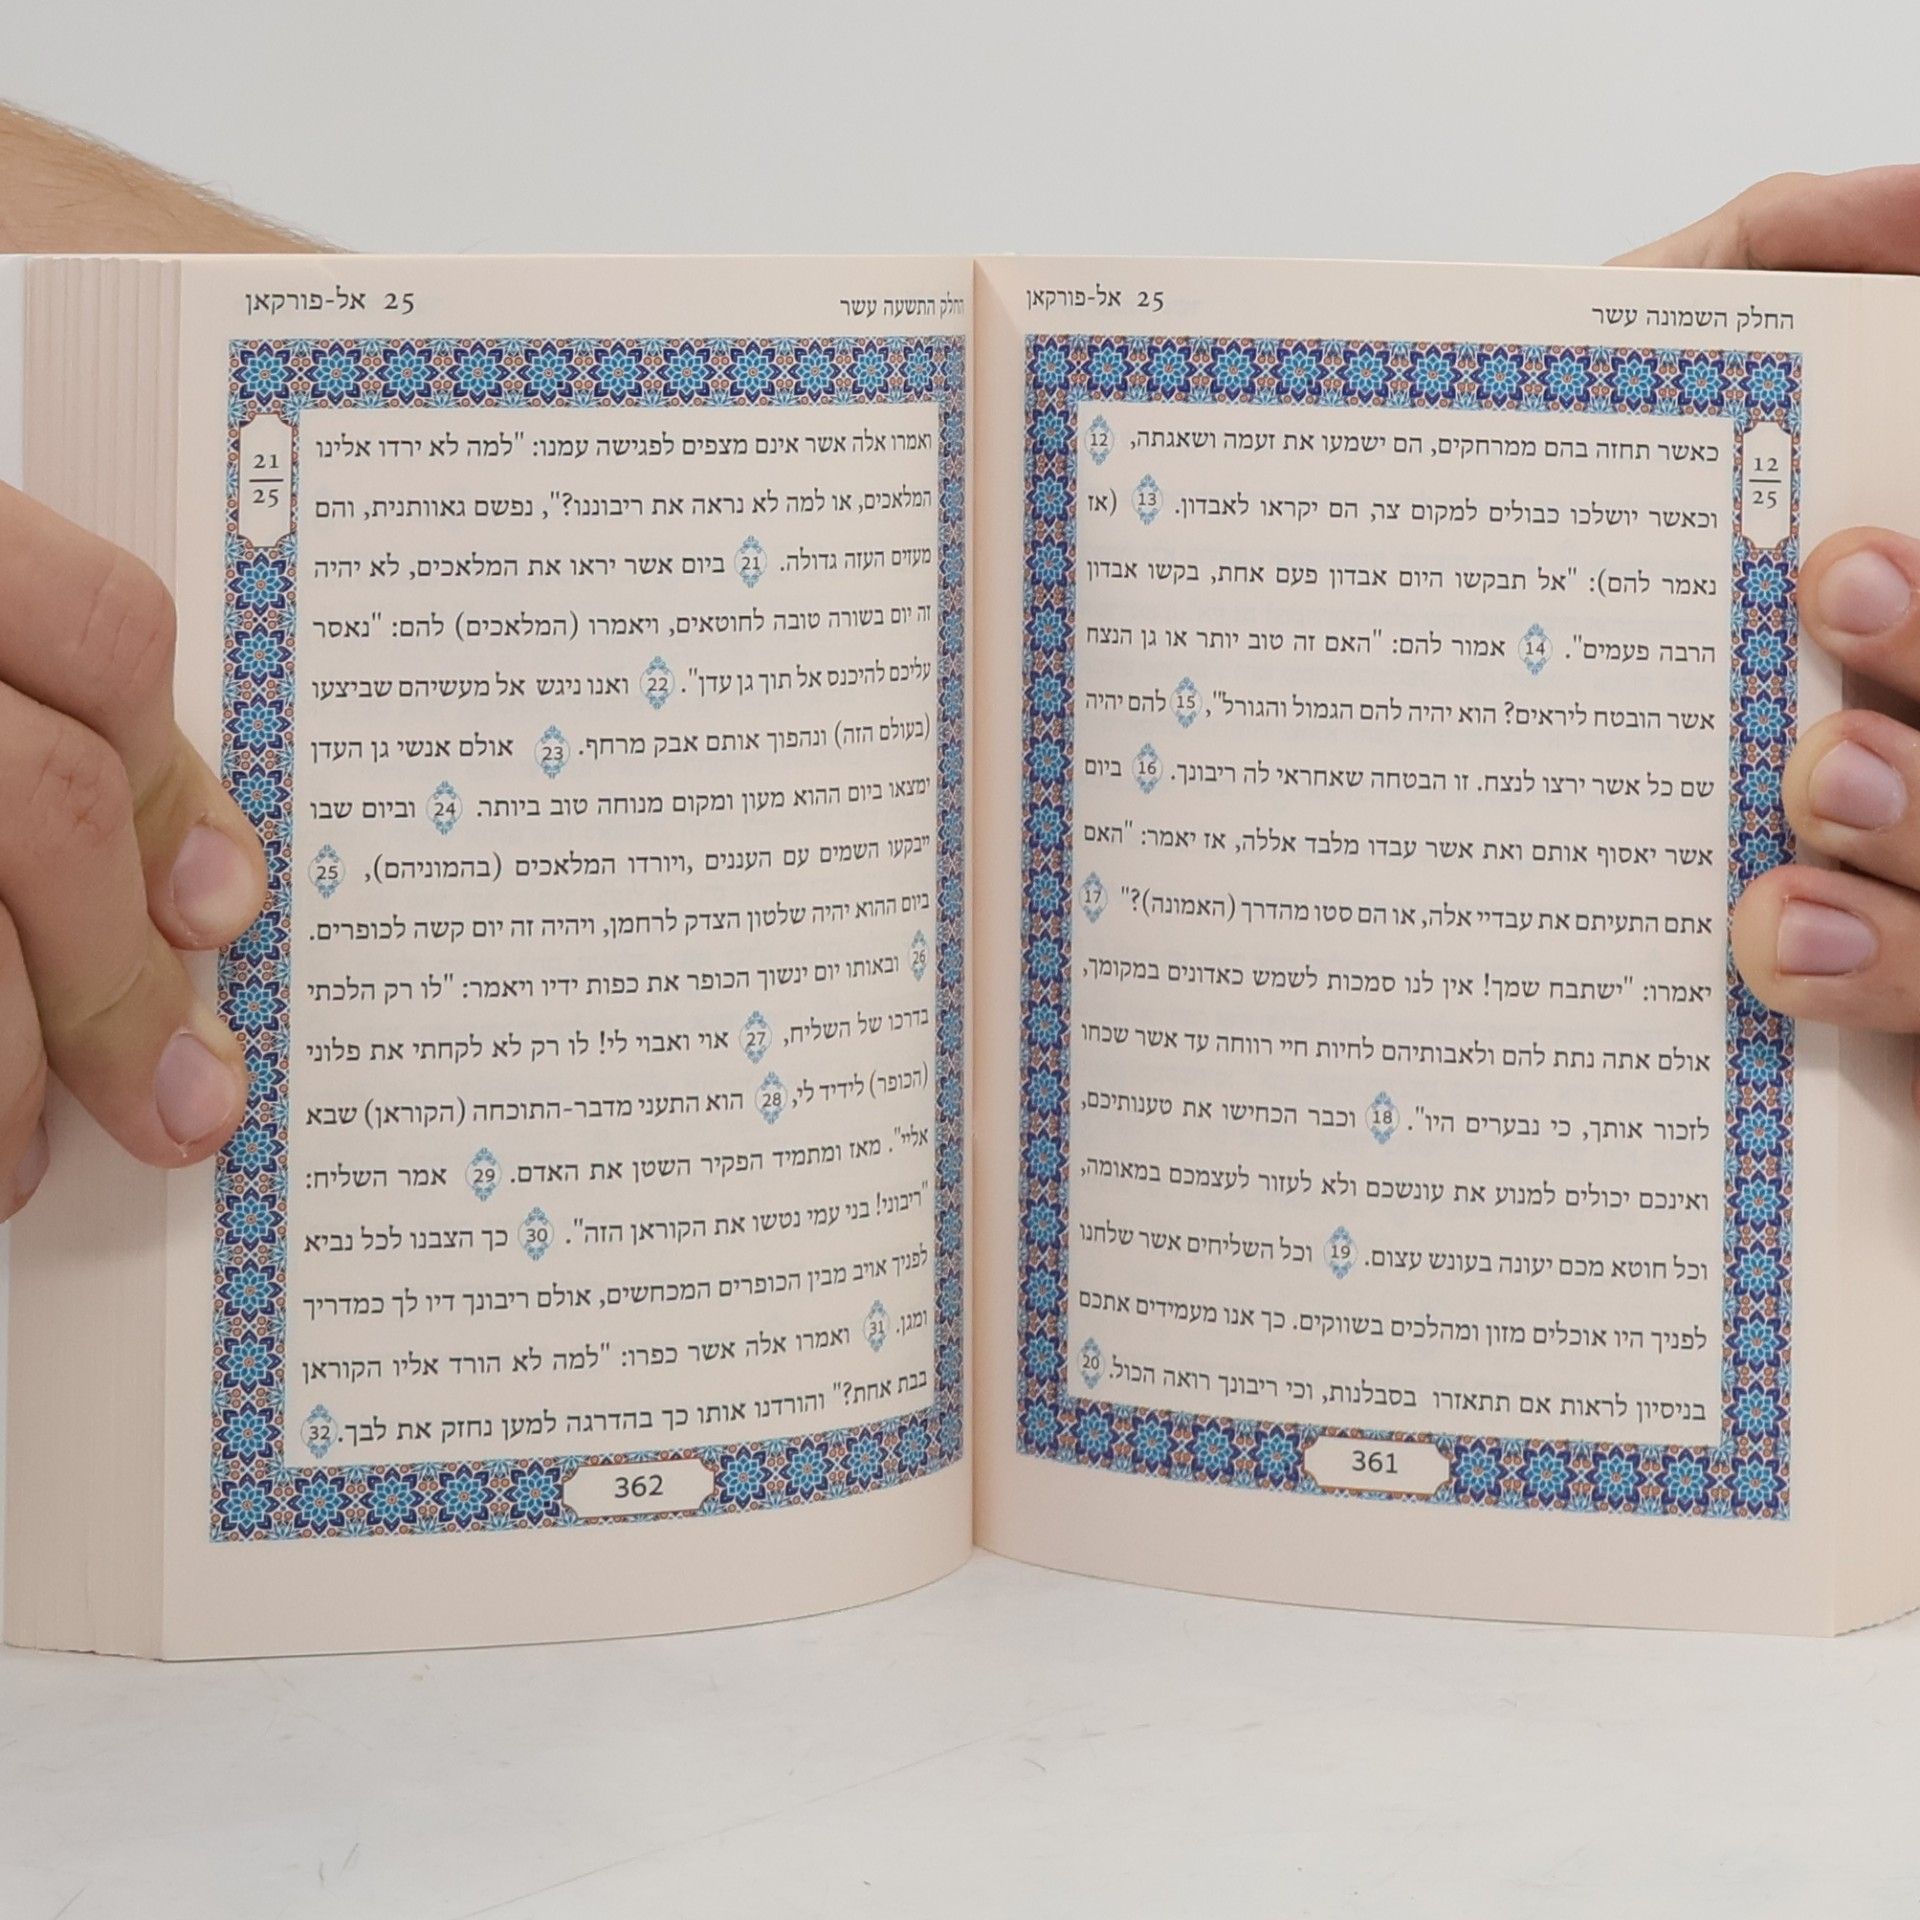 החלק השמונה עשר
25 אל-פורקאן
12
25
כאשר תחזה בהם ממרחקים, הם ישמעו את זעמה ושאגתה, 12
וכאשר יושלכו כבולים למקום צר, הם יקראו לאבדון. 13 (אז
נאמר להם): "אל תבקשו היום אבדון פעם אחת, בקשו אבדון
הרבה פעמים". 14 אמור להם: "האם זה טוב יותר או גן הנצח
אשר הובטח ליראים? הוא יהיה להם הגמול והגורל", 15 להם יהיה
שם כל אשר ירצו לנצח. זו הבטחה שאחראי לה ריבונך. 16 ביום
אשר יאסוף אותם ואת אשר עבדו מלבד אללה, אז יאמר: "האם
אתם התעיתם את עבדיי אלה, או הם סטו מהדרך (האמונה)?" 17
יאמרו: "ישתבח שמך! אין לנו סמכות לשמש כאדונים במקומך,
אולם אתה נתת להם ולאבותיהם לחיות חיי רווחה עד אשר שכחו
לזכור אותך, כי נבערים היו". 18 וכבר הכחישו את טענותיכם,
ואינכם יכולים למנוע את עונשכם ולא לעזור לעצמכם במאומה,
וכל חוטא מכם יעונה בעונש עצום. 19 וכל השליחים אשר שלחנו
לפניך היו אוכלים מזון ומהלכים בשווקים. כך אנו מעמידים אתכם
בניסיון לראות אם תתאזרו בסבלנות, וכי ריבונך רואה הכול. 20
361
החלק התשעה עשר
25 אל-פורקאן
21
25
ואמרו אלה אשר אינם מצפים לפגישה עמנו: "למה לא ירדו אלינו
המלאכים, או למה לא נראה את ריבוננו?", נפשם גאוותנית, והם
מעזים העזה גדולה. 21 ביום אשר יראו את המלאכים, לא יהיה
זה יום בשורה טובה לחוטאים, ויאמרו (המלאכים) להם: "נאסר
עליכם להיכנס אל תוך גן עדן". 22 ואנו ניגש אל מעשיהם שביצעו
(בעולם הזה) ונהפוך אותם אבק מרחף. 23 אולם אנשי גן העדן
ימצאו ביום ההוא מעון ומקום מנוחה טוב ביותר. 24 וביום שבו
ייבקעו השמים עם העננים ,ויורדו המלאכים (בהמוניהם), 25
ביום ההוא יהיה שלטון הצדק לרחמן, ויהיה זה יום קשה לכופרים.
26 ובאותו יום ינשוך הכופר את כפות ידיו ויאמר: "לו רק הלכתי
בדרכו של השליח, 27 אוי ואבוי לי! לו רק לא לקחתי את פלוני
(הכופר) לידיד לי, 28 הוא התעני מדבר-התוכחה (הקוראן) שבא
אליי". מאז ומתמיד הפקיר השטן את האדם. 29 אמר השליח:
"ריבוני! בני עמי נטשו את הקוראן הזה". 30 כך הצבנו לכל נביא
לפניך אויב מבין הכופרים המכחשים, אולם ריבונך דיו לך כמדריך
ומגן. 31 ואמרו אלה אשר כפרו: "למה לא הורד אליו הקוראן
בבת אחת?" והורדנו אותו כך בהדרגה למען נחזק את לבך. 32
362